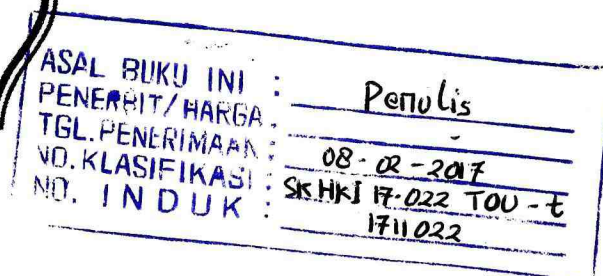 ASAL BUKU INI : Penulis
PENERBIT/HARGA : -
TGL. PENERIMAAN : 08-02-2017
NO. KLASIFIKASI : SK HKI 17.022 TOU-t
NO. INDUK : 1711022